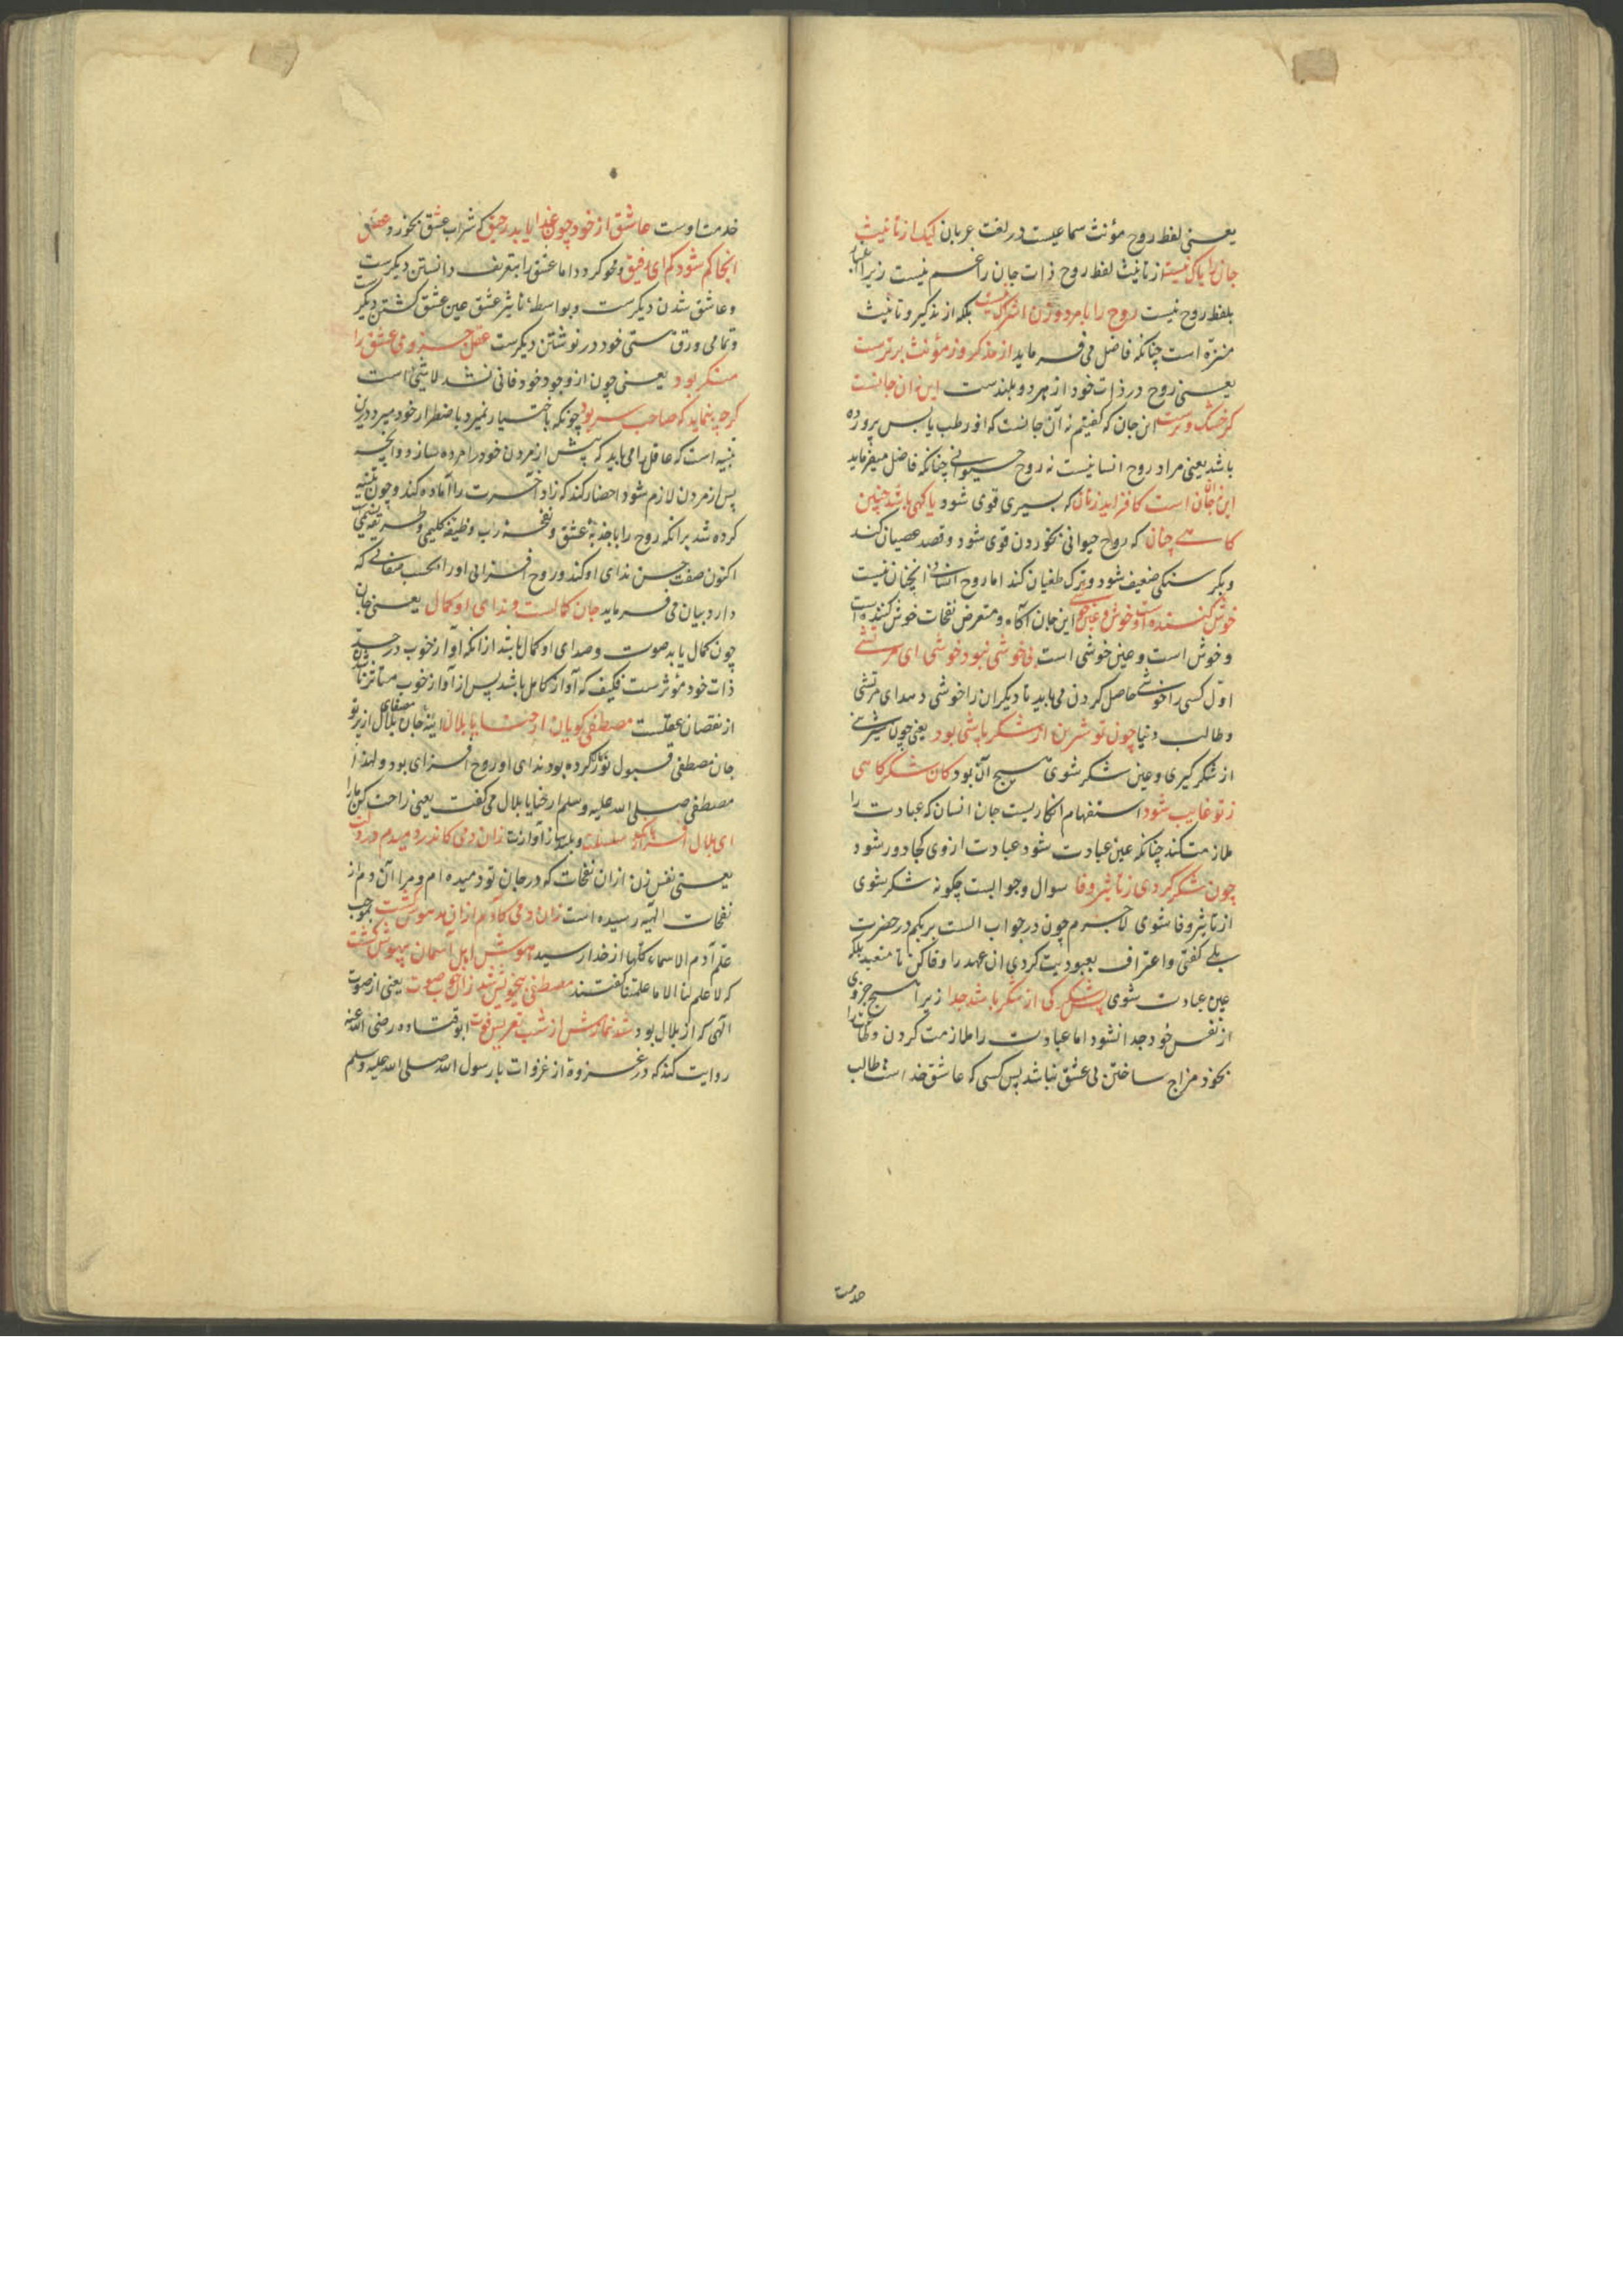 یعنی لفظ روح مؤنث سماعیست در لغت عربان لیک از تانیث
جان را باک نیست از تانیث لفظ روح ذات جان را غم نیست زیرا اعتبار
بلفظ روح نیست روح را با مرد و زن اشراک نیست بلکه از تذکیر و تانیث
منزّه است چنانکه فاضل می فرماید از مذکر وز مؤنث برترست
یعنی روح در ذات خود از هر دو بلندست این نه آن جانست
کز خشک و ترست این جان که گفتیم نه آن جانست که او رطب یابس پرورده
باشد یعنی مراد روح انسانیست نه روح حیوانی چنانکه فاضل میفرماید
این نه آن جان است کافزاید ز نان که بسیری قوی شود یا گهی باشد چنین
گاهی چنان که روح حیوانی بخوردن قوی شود و قصد عصیان کند
و بگرسنگی ضعیف شود و ترک طغیان کند اما روح انسانی انچنان نیست
خوش کننده است و خوش و عین خوشی این جان آگاه و متعرض نفحات خوش کننده است
و خوش است و عین خوشی است بی خوشی نبود خوشی ای مرتشی
اوّل کسی را خوشی حاصل کردن می باید تا دیگران را خوشی دهد ای مرتشی
و طالب دنیا چون تو شیرین از شکر باشی بود یعنی چون شیرینی
از شکر گیری و عین شکر شوی هیچ آن بود کان شکر گاهی
ز تو غایب شود استفهام انکاریست جان انسان که عبادت را
ملازمت کند چنانکه عین عبادت شود عبادت از وی کجا دور شود
چون شکر گردی ز تاثیر وفا سوال و جوابست چگونه شکر شوی
از تاثیر وفا شوی لاجرم چون در جواب الست بربکم در حضرت
بلی گفتی و اعتراف بعبودیت کردی ان عهد را وفا کن تا متعبد بلکه
عین عبادت شوی پس شکر کی از شکر باشد جدا زیرا هیچ جزوی
از نفس خود جدا نشود اما عبادت را ملازمت کردن و طاعت را
بخود مزاج ساختن بی عشق نباشد پس کسی که عاشق خداست طالب
خدمت
خدمت اوست عاشق از خود چون غذا یابد رحیق که شراب عشق بخورد عقل
انجا گم شود گم ای رفیق و محو گردد اما عشق را بتعریف دانستن دیگرست
و عاشق شدن دیگرست و بواسطهٔ تاثیر عشق عین عشق گشتن دیگر
و تمامی ورق هستی خود در نوشتن دیگرست عقل جزوی عشق را
منکر بود یعنی چون از وجود خود فانی نشد لاشیء است
گرچه بنماید که صاحب سر بود چونکه باختیار نمیرد باضطرار خود میرد درین
تنبیه است که عاقل را می باید که پیش از مردن خود را مرده سازد و انچه
پس از مردن لازم شود احضار کند که زاد آخرت را آماده کند و چون تنبیه
کرده شد برانکه روح را با جذبهٔ عشق و نفخهٔ رب وظیفه کلیمی و طریقه
اکنون صفت حسن ندای او کند و روح افزایی او را بحسب صفائی که
دارد بیان می فرماید جان کمالست و ندای او کمال یعنی جان
چون کمال یابد صوت و صدای او کمال یابد ازانکه آواز خوب در حد
ذات خود مؤثرست فکیف که آواز کامل باشد پس از آواز خوب متاثر نا
از نقصان عقلست مصطفی گویان ارحنا یا بلال آینهٔ جان بلال از پرتو
جان مصطفی قبول نور کرده بود ندای او روح افزای بود و لهذا
مصطفی صلی الله علیه و سلم ارحنا یا بلال می گفت یعنی راحت کن ما را
ای بلال افراز بانگ سلسلت و بلند ساز آوازت زان دمی کاندر دمیدم در دلت
یعنی نفس زن از ان نفحات که در جان تو دمیده ام و مرا آن دم از
نفحات الهیّه رسیده است زان دمی کآدم از ان مدهوش گشت بموجب
علّم آدم الاسماء کلّها از خدا رسید هوش اهل آسمان بیهوش گشت
که لا علم لنا الا ما علمتنا گفتند مصطفی بیخویش شد زان خوب صوت یعنی از صوت
الهی که از بلال بود شد نمازش از شب تعریس فوت ابو قتاده رضی الله عنه
روایت کند که در غزوهٔ از غزوات با رسول الله صلی الله علیه وسلم